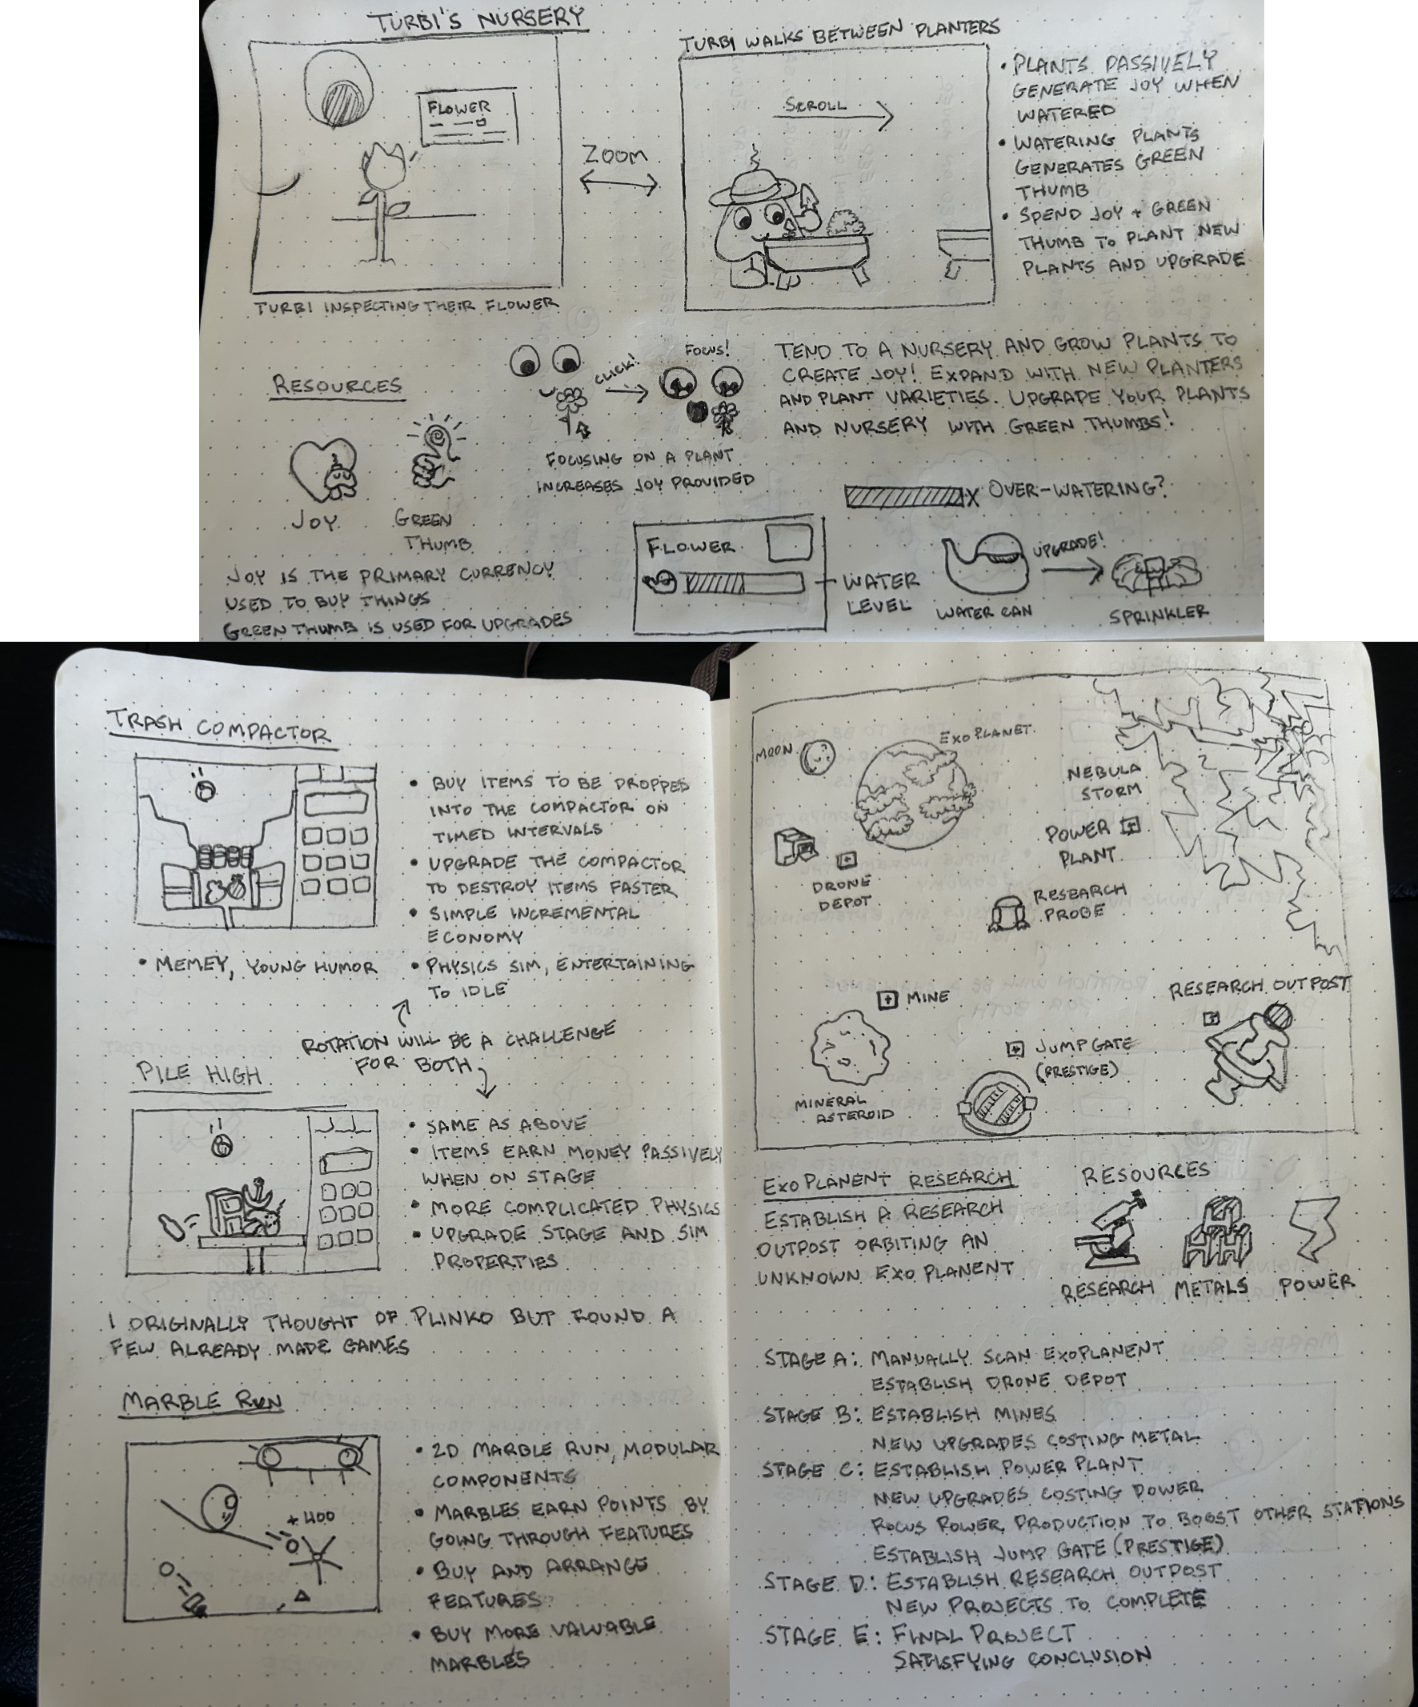 TURBI'S NURSERY
FLOWER
TURBI INSPECTING THEIR FLOWER
ZOOM
TURBI WALKS BETWEEN PLANTERS
SCROLL
• PLANTS PASSIVELY
GENERATE JOY WHEN
WATERED
• WATERING PLANTS
GENERATES GREEN
THUMB
• SPEND JOY + GREEN
THUMB TO PLANT NEW
PLANTS AND UPGRADE
RESOURCES
JOY
GREEN
THUMB
JOY IS THE PRIMARY CURRENCY
USED TO BUY THINGS
GREEN THUMB IS USED FOR UPGRADES
CLICK!
FOCUS!
FOCUSING ON A PLANT
INCREASES JOY PROVIDED
TEND TO A NURSERY AND GROW PLANTS TO
CREATE JOY! EXPAND WITH NEW PLANTERS
AND PLANT VARIETIES. UPGRADE YOUR PLANTS
AND NURSERY WITH GREEN THUMBS!
X OVER-WATERING?
FLOWER
WATER
LEVEL
WATER CAN
UPGRADE!
SPRINKLER
TRASH COMPACTOR
• BUY ITEMS TO BE DROPPED
INTO THE COMPACTOR ON
TIMED INTERVALS
• UPGRADE THE COMPACTOR
TO DESTROY ITEMS FASTER
• SIMPLE INCREMENTAL
ECONOMY
• PHYSICS SIM, ENTERTAINING
TO IDLE
• MEMEY, YOUNG HUMOR
ROTATION WILL BE A CHALLENGE
FOR BOTH
PILE HIGH
• SAME AS ABOVE
• ITEMS EARN MONEY PASSIVELY
WHEN ON STAGE
• MORE COMPLICATED PHYSICS
• UPGRADE STAGE AND SIM
PROPERTIES
I ORIGINALLY THOUGHT OF PLINKO BUT FOUND A
FEW ALREADY MADE GAMES
MARBLE RUN
+400
• 2D MARBLE RUN, MODULAR
COMPONENTS
• MARBLES EARN POINTS BY
GOING THROUGH FEATURES
• BUY AND ARRANGE
FEATURES
• BUY MORE VALUABLE
MARBLES
MOON
EXOPLANET
NEBULA
STORM
POWER
PLANT
DRONE
DEPOT
RESEARCH
PROBE
MINE
RESEARCH OUTPOST
JUMP GATE
(PRESTIGE)
MINERAL
ASTEROID
EXOPLANENT RESEARCH
ESTABLISH A RESEARCH
OUTPOST ORBITING AN
UNKNOWN EXOPLANENT
RESOURCES
RESEARCH METALS POWER
STAGE A: MANUALLY SCAN EXOPLANENT
ESTABLISH DRONE DEPOT
STAGE B: ESTABLISH MINES
NEW UPGRADES COSTING METAL
STAGE C: ESTABLISH POWER PLANT
NEW UPGRADES COSTING POWER
FOCUS POWER PRODUCTION TO BOOST OTHER STATIONS
ESTABLISH JUMP GATE (PRESTIGE)
STAGE D: ESTABLISH RESEARCH OUTPOST
NEW PROJECTS TO COMPLETE
STAGE E: FINAL PROJECT
SATISFYING CONCLUSION